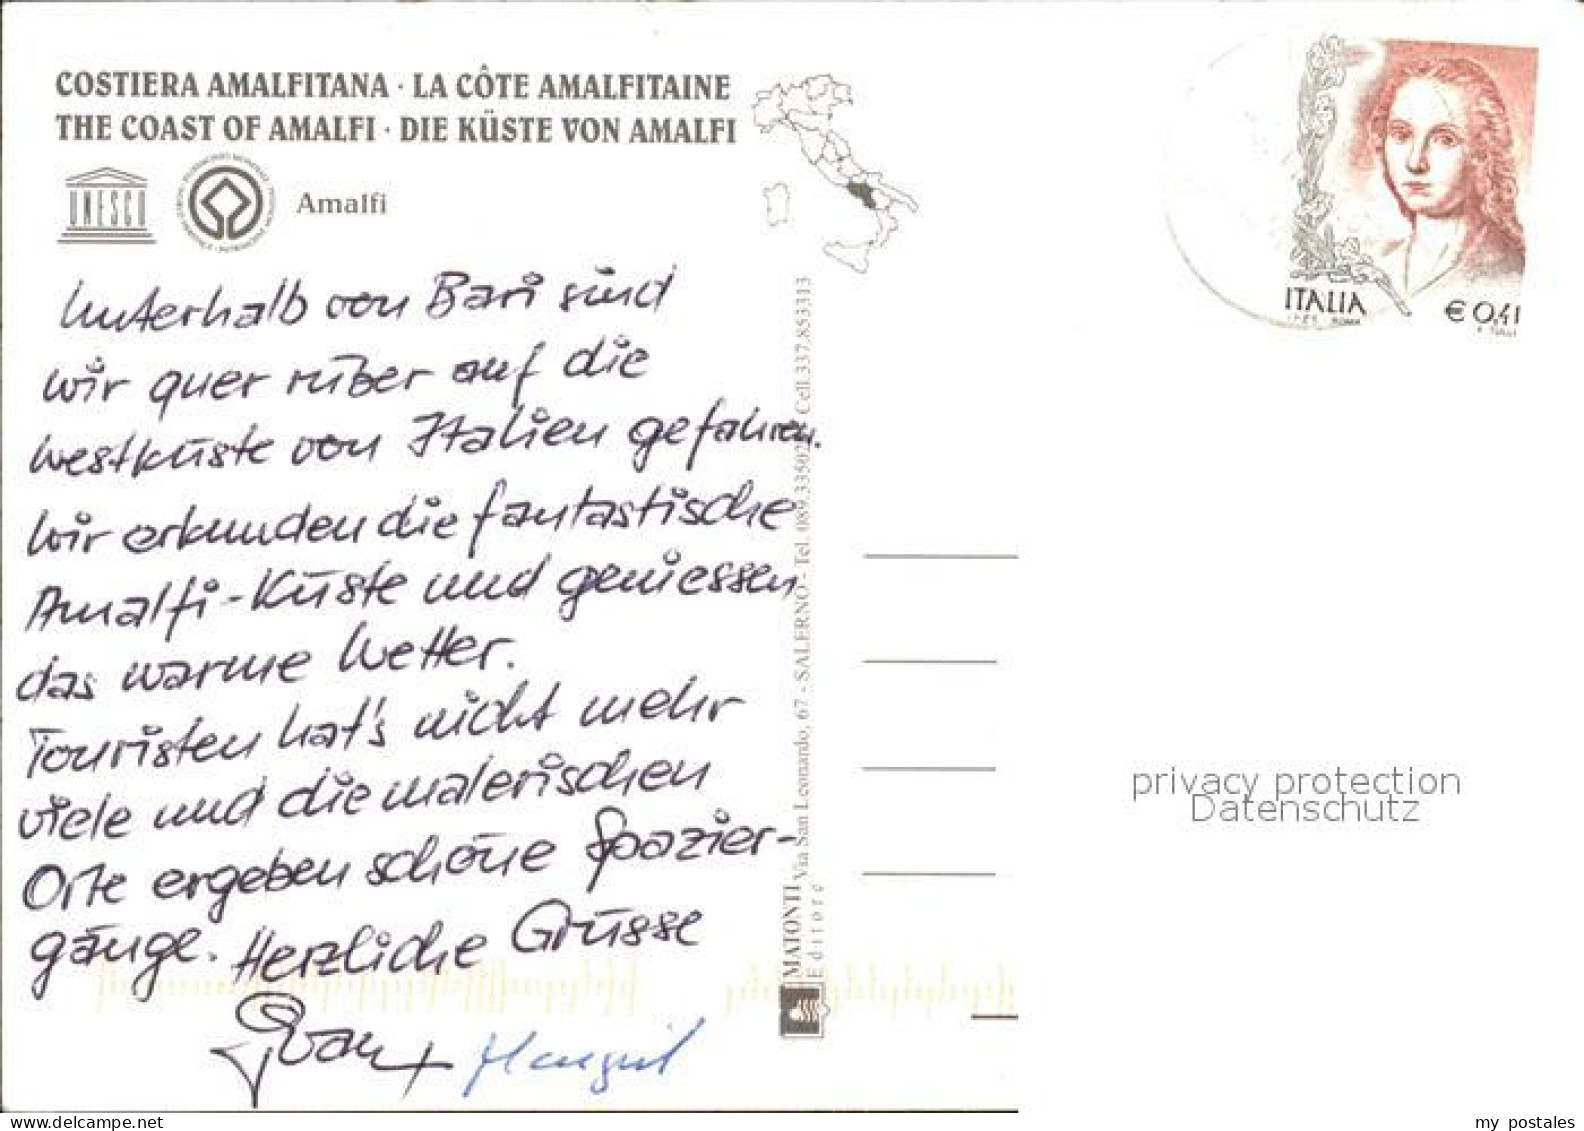 COSTIERA AMALFITANA · LA CÔTE AMALFITAINE
THE COAST OF AMALFI · DIE KÜSTE VON AMALFI
UNESCO
Amalfi
ITALIA
€ 0,41
I.P.Z.S. ROMA
Unterhalb von Bari sind
wir quer rüber auf die
Westküste von Italien gefahren.
Wir erkunden die fantastische
Amalfi-Küste und geniessen
das warme Wetter.
Touristen hat's nicht mehr
viele und die malerischen
Orte ergeben schöne Spazier-
gänge. Herzliche Grüsse
MATONTI Via San Leonardo, 67 - SALERNO - Tel. 089.33502 Cell.337.853313
Editore
privacy protection
Datenschutz
my postales